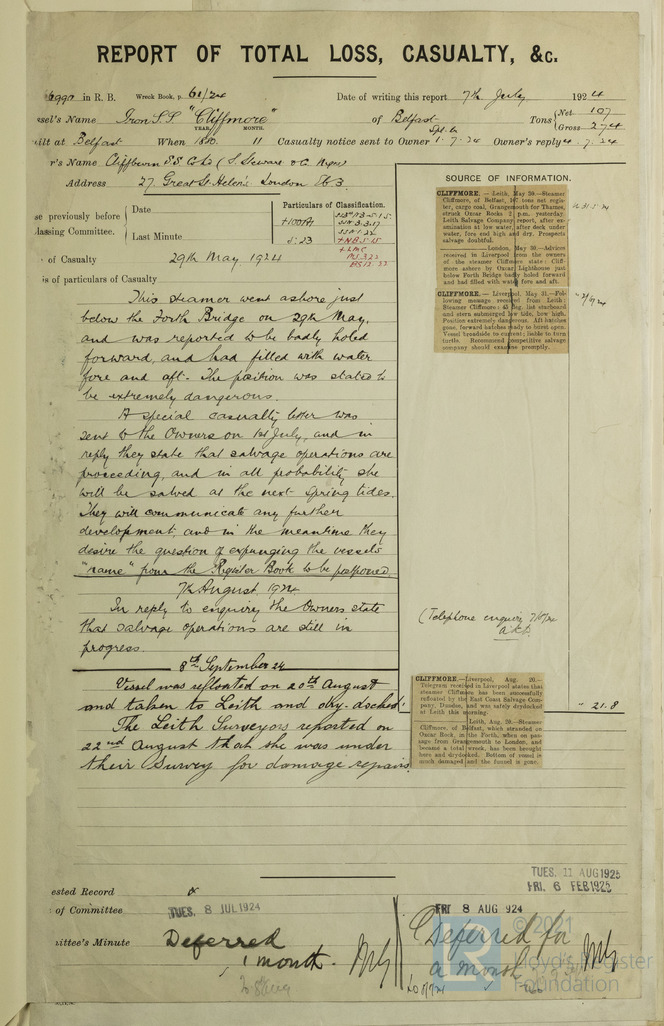 REPORT OF TOTAL LOSS, CASUALTY, &c.
in R. B. Wreck Book, p. 61/24 Date of writing this report 7th July 1924
ssel's Name Iron S.S. "Cliffmore" of Belfast Tons { Net 107
YEAR. MONTH. Gross 274
uilt at Belfast When 11 Casualty notice sent to Owner 1.7.24 Owner's reply 4.7.24
r's Name
Address 27, Great St. Helen's London E.C.3.
SOURCE OF INFORMATION.
se previously before
lassing Committee.
Date
Last Minute
Particulars of Classification.
+100A1
5.23
of Casualty 29th May 1924
is of particulars of Casualty
This steamer went ashore just
below the Forth Bridge on 29th May,
and was reported to be badly holed
forward, and had filled with water
fore and aft. The position was stated to
be extremely dangerous.
A special casualty letter was
sent to the Owners on 1st July, and in
reply they state that salvage operations are
proceeding, and in all probability she
will be salved at the next Spring tides.
They will communicate any further
development, and in the meantime they
desire the question of expunging the vessel's
"name" from the Register Book to be postponed.
7th August 1924
In reply to enquiry the Owners state
that salvage operations are still in
progress.
8th September 24
Vessel was refloated on 20th August
and taken to Leith and dry-docked.
The Leith Surveyors reported on
22nd August that she was under
their Survey for damage repairs.
CLIFFMORE. – Leith, May 30.–Steamer
Cliffmore, of Belfast, 107 tons net regis-
ter, cargo coal, Grangemouth for Thames,
struck Oxcar Rocks 2 p.m. yesterday.
Leith Salvage Company report, after ex-
amination at low water, after deck under
water, fore end high and dry. Prospects
salvage doubtful.
London, May 30.–Advices
received in Liverpool from the owners
of the Cliffmore steamer state: Cliff-
more ashore by Oxcar Lighthouse just
below Forth Bridge badly holed forward
and had filled with water fore and aft.
31.5.24
CLIFFMORE.–Liverpool, May 31.–Fol-
lowing message received from Leith:
Steamer Cliffmore: 45 deg. list starboard
and stern submerged low tide, bow high.
Position extremely dangerous. Aft hatches
gone, forward hatches ready to burst open.
Vessel broadside to current; liable to turn
turtle. Recommend competitive salvage
company should examine promptly.
(Telephone enquiry
CLIFFMORE.–Liverpool, Aug. 20.–
Telegram received in Liverpool states that
steamer Cliffmore has been successfully
refloated by the East Coast Salvage Com-
pany, Dundee, and was safely drydocked
at Leith this morning.
Leith, Aug. 20.–Steamer
Cliffmore, of Belfast, which stranded on
Oxcar Rock, in the Forth, when on pas-
sage from Grangemouth to London, and
became a total wreck, has been brought
here and drydocked. Bottom of vessel is
much damaged and the funnel is gone.
" 21.8
TUES. 11 AUG 1925
FRI. 6 FEB 1925
ested Record
of Committee TUES. 8 JUL 1924 FRI 8 AUG 924
ittee's Minute Deferred
1 month.
Deferred for
a month
LR
© 2021
Lloyd's Register
Foundation